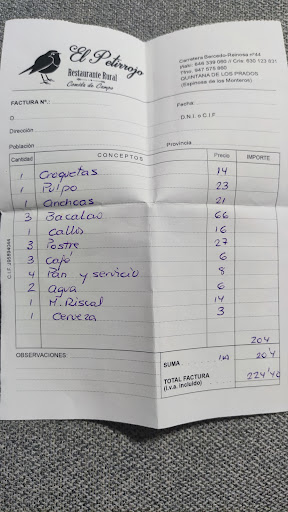 El Petirrojo
Restaurante Rural
Comida de Campo
Carretera Bercedo-Reinosa nº44
QUINTANA DE LOS PRADOS
(Espinosa de los Monteros)
FACTURA Nº.:
Fecha:
D.
D.N.I. o C.I.F.
Dirección
Población
Provincia
Cantidad CONCEPTOS Precio IMPORTE
1 Croquetas 14
1 Pulpo 23
1 Anchoas 21
3 Bacalao 66
1 Callos 16
3 Postre 27
3 Café 6
4 Pan y servicio 8
2 Agua 6
1 M. Riscal 14
1 Cerveza 3
204
OBSERVACIONES:
SUMA IVA 20'4
TOTAL FACTURA 224'40
(i.v.a. incluido)